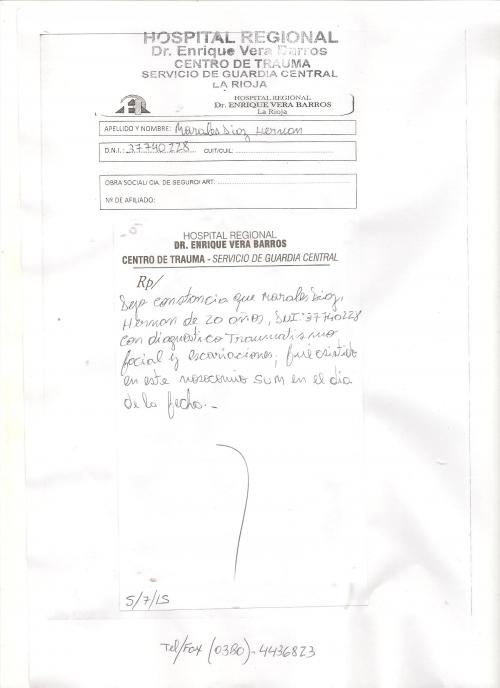 HOSPITAL REGIONAL
Dr. Enrique Vera Barros
CENTRO DE TRAUMA
SERVICIO DE GUARDIA CENTRAL
LA RIOJA
HOSPITAL REGIONAL
Dr. ENRIQUE VERA BARROS
La Rioja
APELLIDO Y NOMBRE: Morales Dioz Hernon
D.N.I.: 37740228 CUIT/CUIL:
OBRA SOCIAL/ CIA. DE SEGURO/ ART:
Nº DE AFILIADO:
HOSPITAL REGIONAL
DR. ENRIQUE VERA BARROS
CENTRO DE TRAUMA - SERVICIO DE GUARDIA CENTRAL
Rp/
Dejo constancia que Morales Dioz,
Hernon de 20 años, DNI: 37740228
con diagnostico Traumatismo
facial y escoriaciones, fué asistido
en este nosocomio SUM en el dia
de la fecha.-
5/7/15
Tel/Fax (0380)-4436823